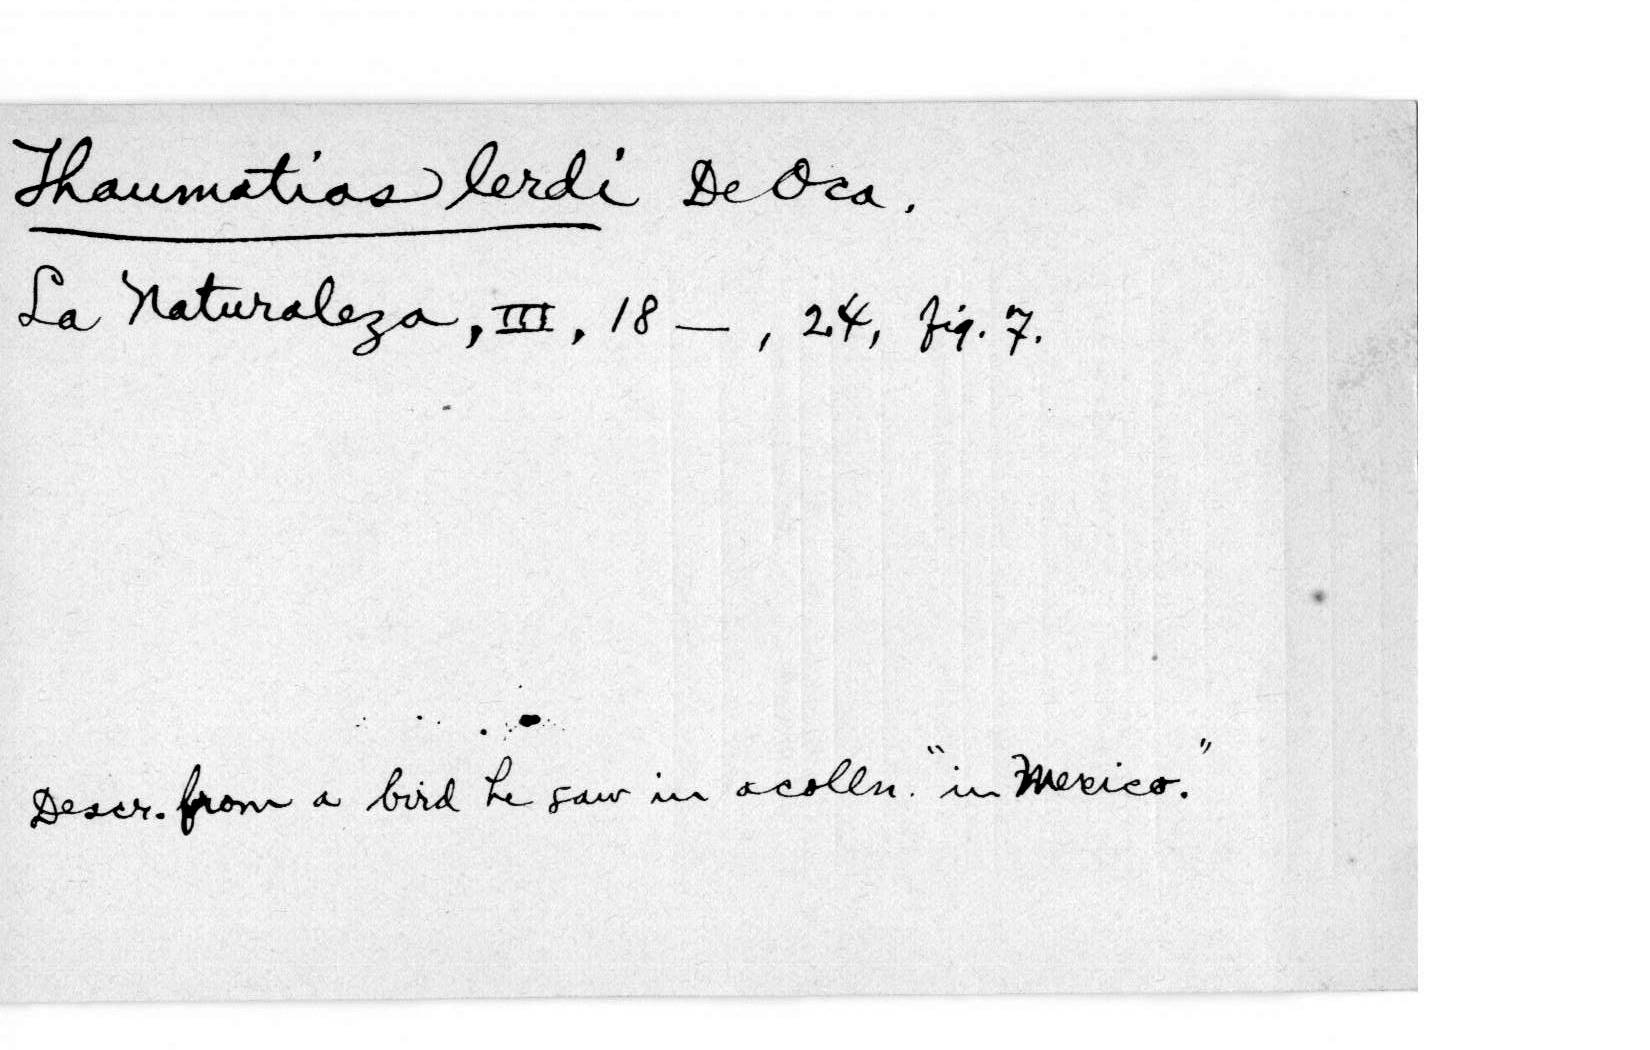 Thaumatias lerdi De Oca.
La Naturaleza, III, 18 — , 24, fig. 7.
Descr. from a bird he saw in a colln. "in Mexico."